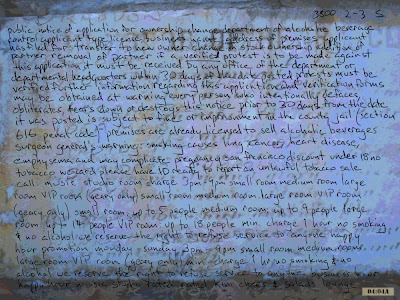 3500 2-3 S
public notice of application for ownership change department of alcoholic beverage
control applicant type license business name address of premises applicant
has filed for transfer to new owner change in stock ownership addition of
partner removal of partner if a verified protest is to be made against
this application it must be received by any office of the department or
departmental headquarters within 30 days of the date posted protests must be
verified further information regarding this application and verification forms
may be obtained at warning every person who intentionally defaces
obliterates tears down or destroys this notice prior to 30 days from the date
it was posted is subject to fine or imprisonment in the county jail (section
616 penal code) premises are already licensed to sell alcoholic beverages
surgeon general's warning: smoking causes lung cancer, heart disease,
emphysema and may complicate pregnancy san francisco discount under 18 no
tobacco we card please have ID ready to report an unlawful tobacco sale
call music studio room charge 3pm 9pm small room medium room large
room VIP room (geary only) small room medium room large room VIP room
(geary only) small room up to 5 people medium room up to 9 people large
room up to 14 people VIP room up to 18 people min charge 1 hour no smoking
& no alcohol we reserve the right to refuse service to anyone happy
hour promotions monday - sunday 3pm - 9pm small room medium room
large room VIP room (geary only) min charge 1 hr no smoking & no
alcohol we reserve the right to refuse service to anyone business hour
04:04A